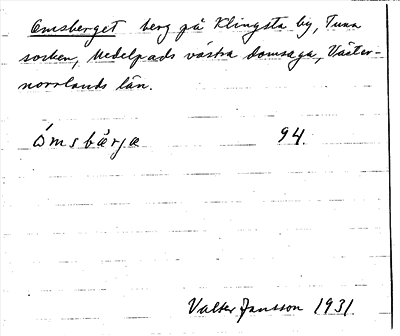 Omsberget berg på Klingsta by, Tuna
socken, Medelpads västra domsaga, Väster-
norrlands län.
Ómsbärja 94.
Valter Jansson 1931.